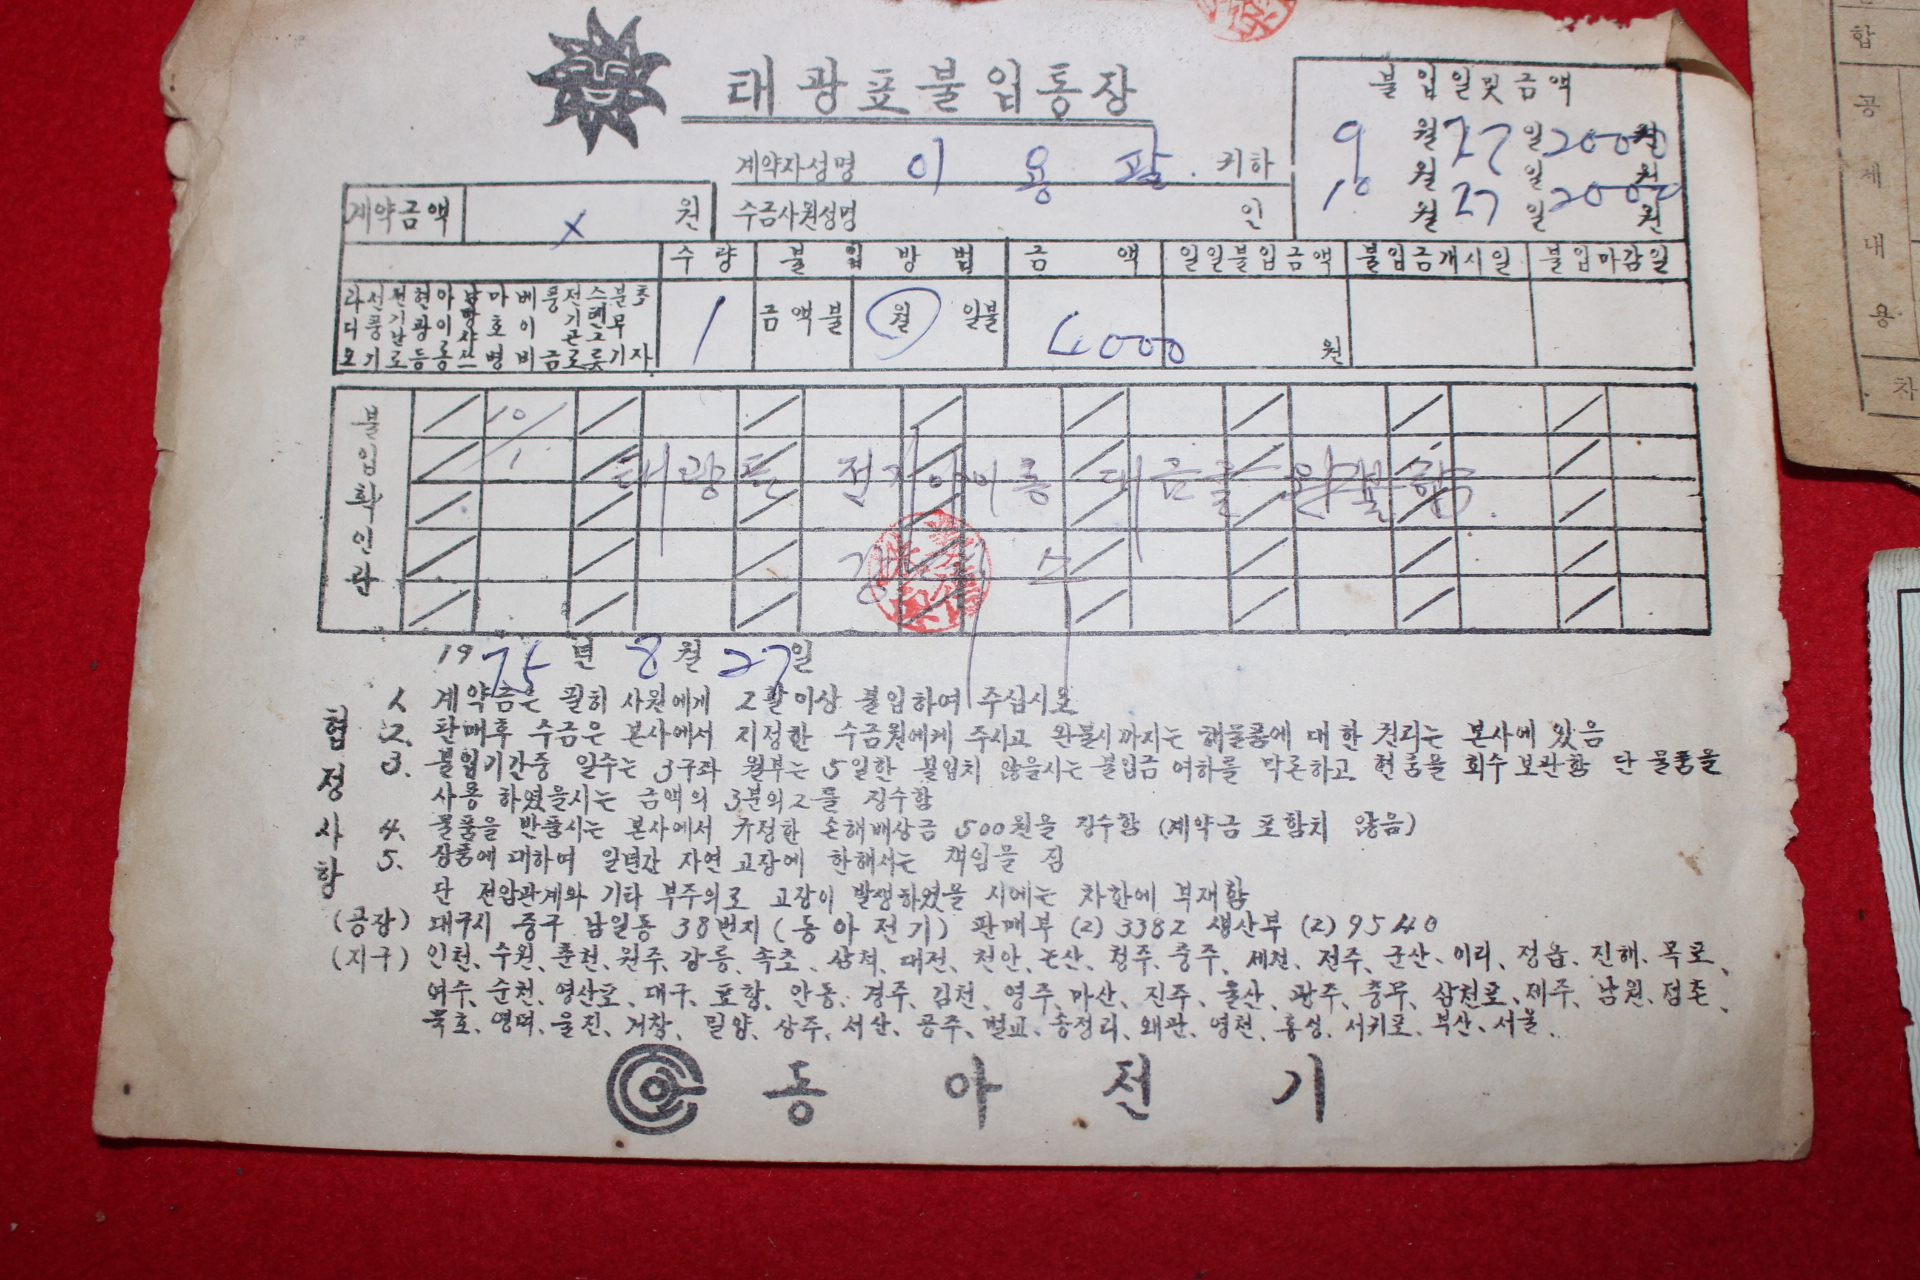 태광표불입통장
불입일및금액
9월 27일 2000원
10월 27일 2000원
월 일 원
계약자성명 이용팔 귀하
계약금액 x 원
수금사원성명 인
수량 불입방법 금액 일일불입금액 불입금개시일 불입마감일
1 금액불 월 일불 4000 원
불입확인란
10/1
태광표 전기아이롱 대금을 완불함.
1975년 8월 27일
협정사항
1. 계약금은 필히 사원에게 2할이상 불입하여 주십시요
2. 판매후 수금은 본사에서 지정한 수금원에게 주시고 완불시까지는 해물품에 대한 권리는 본사에 있음
3. 불입기간중 일수는 3구좌 월부는 5일한 불입치 않을시는 불입금 여하를 막론하고 현품을 회수 보관함 단 물품을
사용 하였을시는 금액의 3분의2를 징수함
4. 물품을 반품시는 본사에서 규정한 손해배상금 500원을 징수함 (계약금 포함치 않음)
5. 상품에 대하여 일년간 자연 고장에 한해서는 책임을 짐
단 전압관계와 기타 부주의로 고장이 발생하였을 시에는 차한에 부재함
(공장) 대구시 중구 남일동 38번지 (동아전기) 판매부 (2) 3382 생산부 (2) 9540
(지구) 인천、수원、춘천、원주、강릉、속초、삼척、대전、천안、논산、청주、충주、제천、전주、군산、이리、정읍、진해、목포、
여수、순천、영산포、대구、포항、안동、경주、김천、영주、마산、진주、울산、광주、충무、삼천포、제주、남원、점촌、
묵호、영덕、울진、거창、밀양、상주、서산、공주、벌교、송정리、왜관、영천、홍성、서귀포、부산、서울、
동아전기
합
공
제
내
용
차